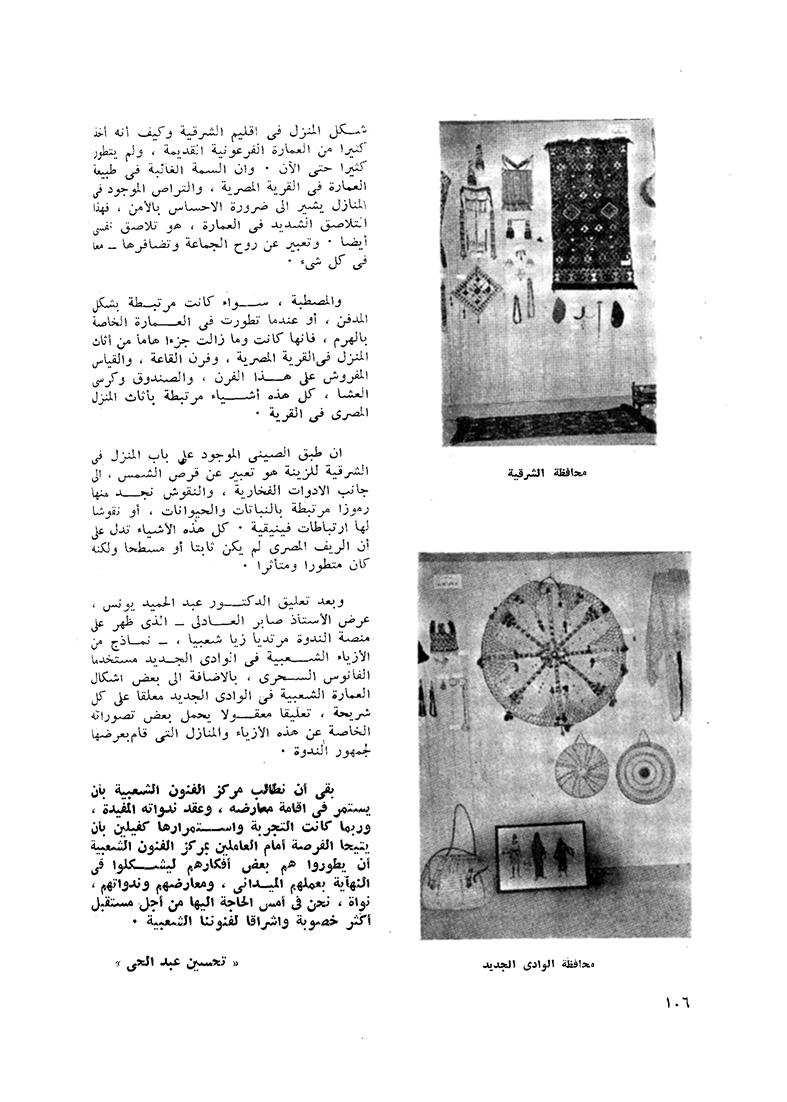 شكل المنزل فى اقليم الشرقية وكيف أنه أخذ
كثيرا من العمارة الفرعونية القديمة ، ولم يتطور
كثيرا حتى الآن ٠ وان السمة الغالبة فى طبيعة
العمارة فى القرية المصرية ، والتراص الموجود فى
المنازل يشير الى ضرورة الاحساس بالأمن ، فهذا
التلاصق الشديد فى العمارة ، هو تلاصق نفسى
أيضا ٠ وتعبير عن روح الجماعة وتضافرها ــ معا
فى كل شىء ٠
والمصطبة ، سواء كانت مرتبطة بشكل
المدفن ، أو عندما تطورت فى العمارة الخاصة
بالهرم ، فانها كانت وما زالت جزءا هاما من أثاث
المنزل فى القرية المصرية ، وفرن القاعة ، والقياس
المفروش على هذا الفرن ، والصندوق وكرسى
العشا ، كل هذه أشياء مرتبطة بأثاث المنزل
المصرى فى القرية ٠
ان طبق الصينى الموجود على باب المنزل فى
الشرقية للزينة هو تعبير عن قرص الشمس ، الى
جانب الادوات الفخارية ، والنقوش نجد منها
رموزا مرتبطة بالنباتات والحيوانات ، أو نقوشا
لها ارتباطات فينيقية ٠ كل هذه الأشياء تدل على
أن الريف المصرى لم يكن ثابتا أو مسطحا ولكنه
كان متطورا ومتأثرا ٠
وبعد تعليق الدكتور عبد الحميد يونس ،
عرض الأستاذ صابر العادلى ــ الذى ظهر على
منصة الندوة مرتديا زيا شعبيا ، ــ نماذج من
الأزياء الشعبية فى الوادى الجديد مستخدما
الفانوس السحرى ، بالاضافة الى بعض اشكال
العمارة الشعبية فى الوادى الجديد معلقا على كل
شريحة ، تعليقا معقولا يحمل بعض تصوراته
الخاصة عن هذه الأزياء والمنازل التى قام بعرضها
لجمهور الندوة ٠
بقى أن نطالب مركز الفنون الشعبية بأن
يستمر فى اقامة معارضه ، وعقد ندواته المفيدة ،
وربما كانت التجربة واستمرارها كفيلين بأن
يتيحا الفرصة أمام العاملين بمركز الفنون الشعبية
أن يطوروا هم بعض أفكارهم ليشكلوا فى
النهاية بعملهم الميدانى ، ومعارضهم وندواتهم ،
نواة ، نحن فى أمس الحاجة اليها من أجل مستقبل
أكثر خصوبة واشراقا لفنوننا الشعبية ٠
« تحسين عبد الحى »
محافظة الشرقية
محافظة الوادى الجديد
١٠٦